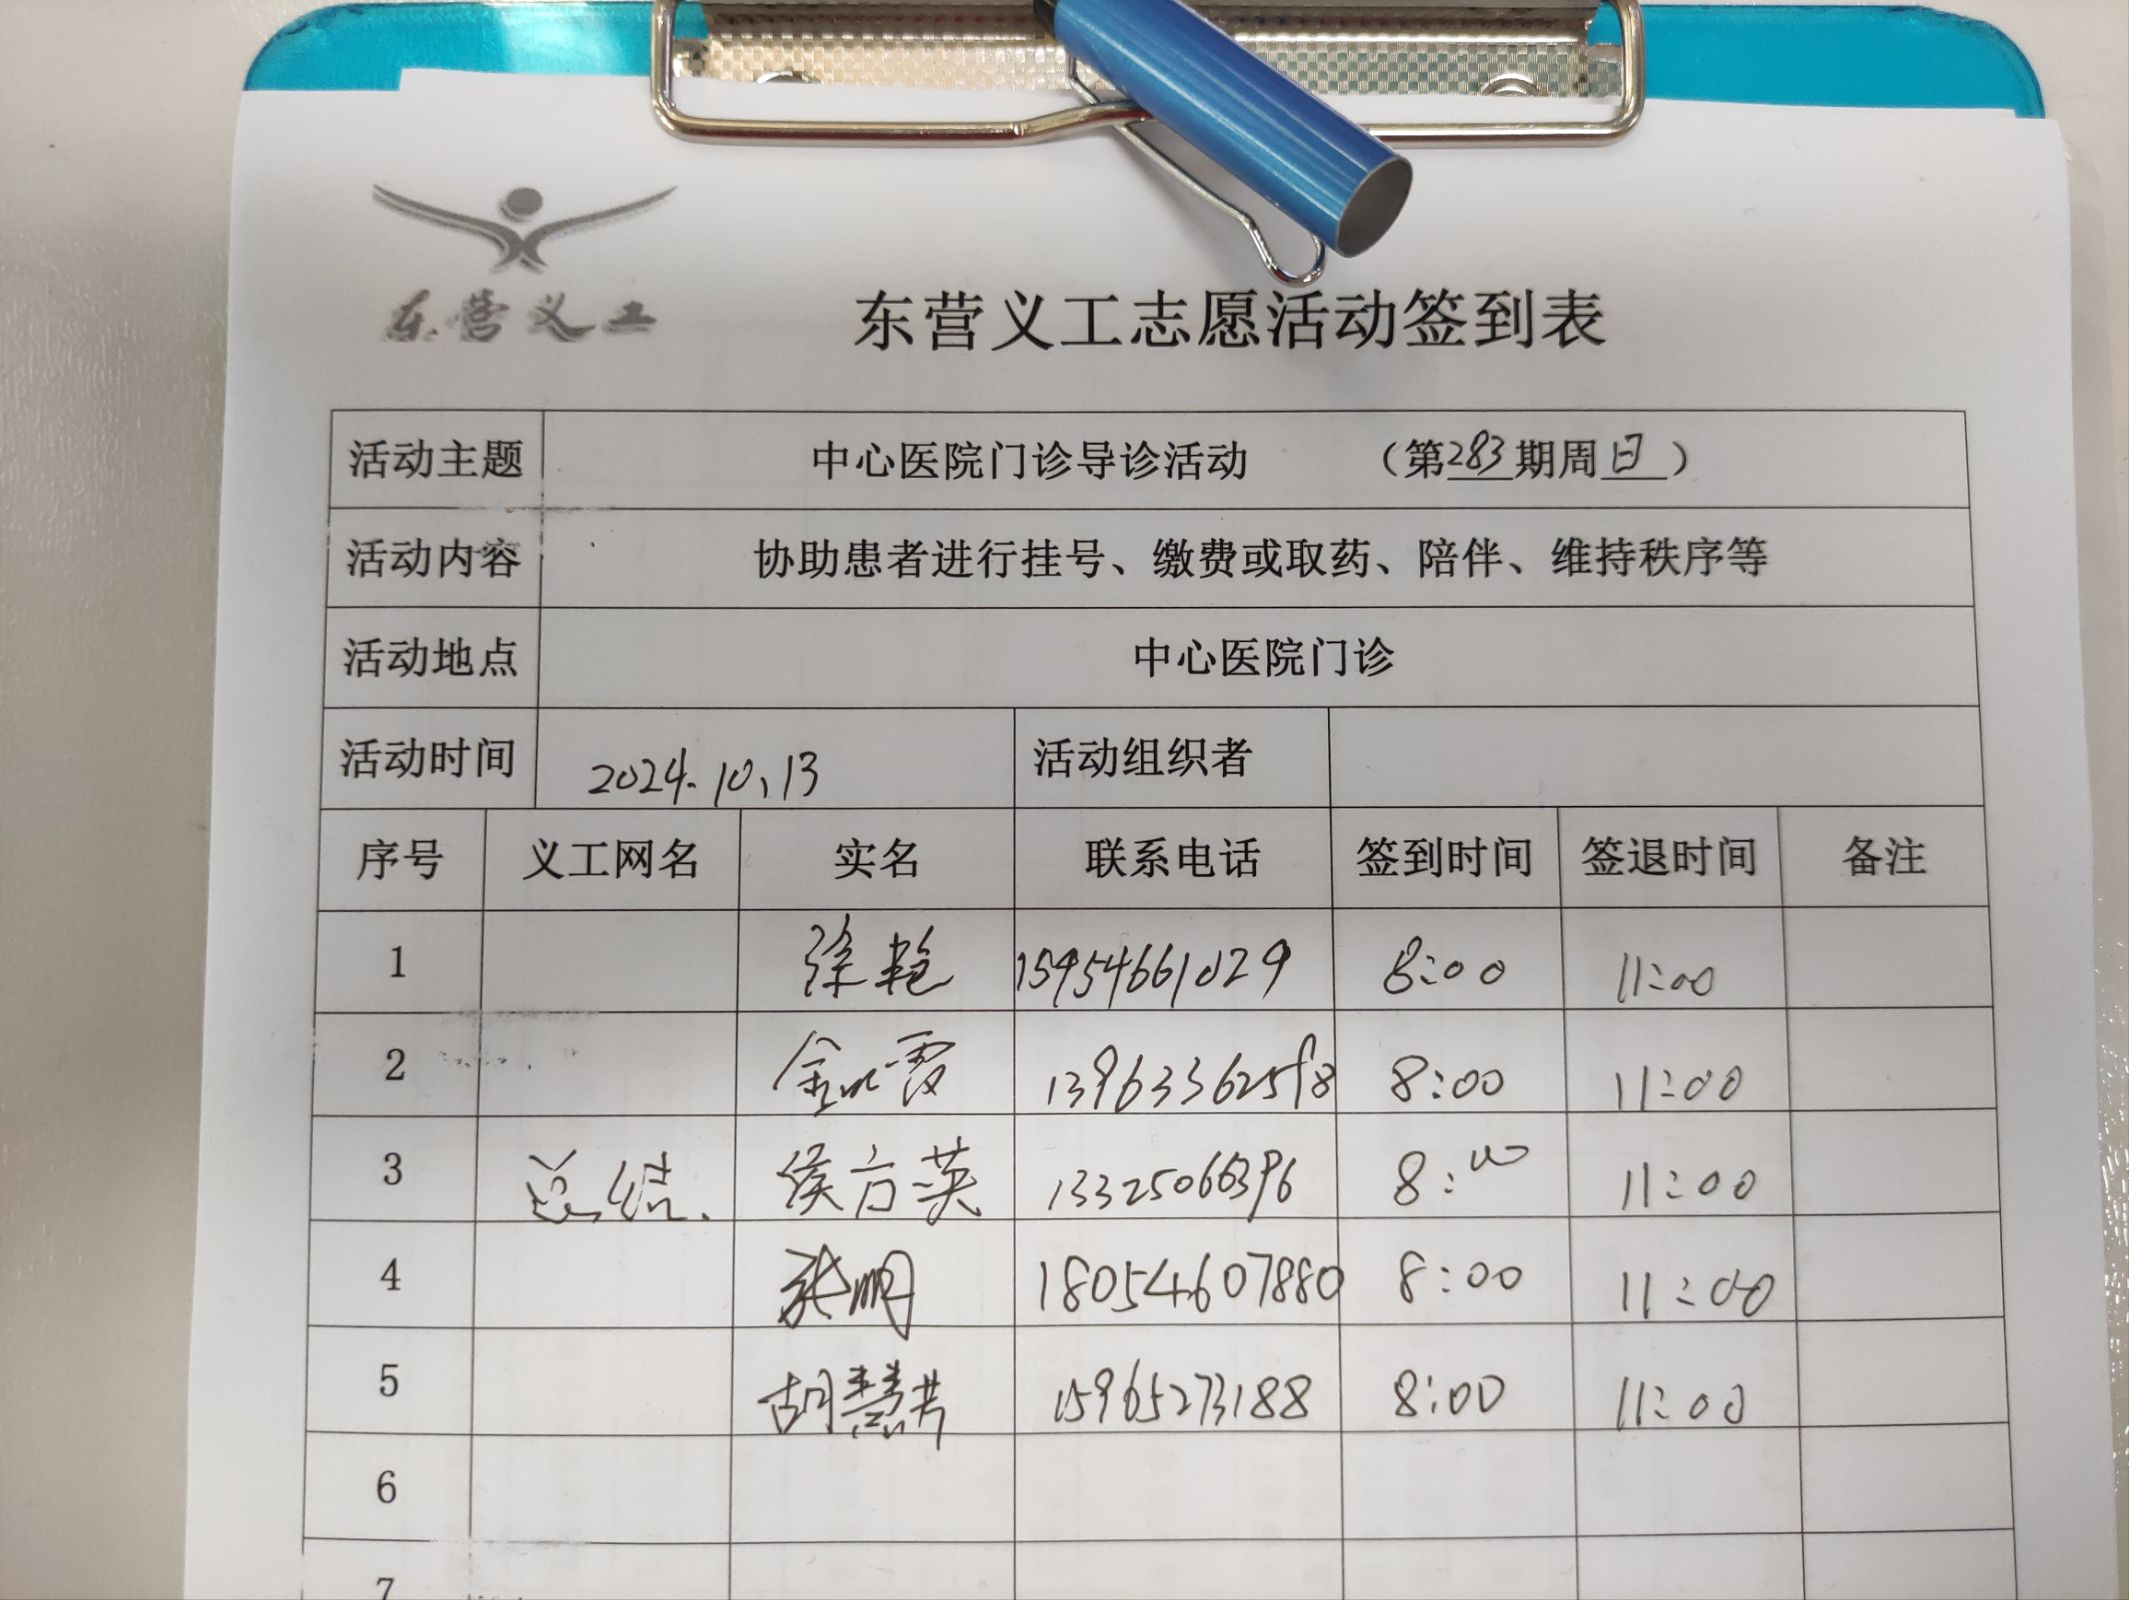 东营义工
东营义工志愿活动签到表
活动主题 中心医院门诊导诊活动 （第283期周日）
活动内容 协助患者进行挂号、缴费或取药、陪伴、维持秩序等
活动地点 中心医院门诊
活动时间 2024.10.13 活动组织者
序号 义工网名 实名 联系电话 签到时间 签退时间 备注
1 徐艳 15954661029 8:00 11:00
2 8:00 11:00
3 总结. 侯方英 8:00 11:00
4 张明 18054607880 8:00 11:00
5 胡慧 15965273188 8:00 11:00
6
7